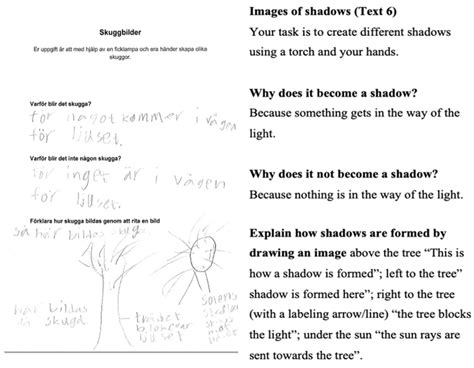 Skuggbilder
Er uppgift är att med hjälp av en ficklampa och era händer skapa olika
skuggor.
Varför blir det skugga?
för något kommer i vägen
för ljuset.
Varför blir det inte någon skugga?
för inget är i vägen
för ljuset.
Förklara hur skugga bildas genom att rita en bild
så här bildas skugga
här bildas
skugga
trädet
blockerar
ljuset
solens
Images of shadows (Text 6)
Your task is to create different shadows
using a torch and your hands.
Why does it become a shadow?
Because something gets in the way of the
light.
Why does it not become a shadow?
Because nothing is in the way of the light.
Explain how shadows are formed by
drawing an image above the tree “This is
how a shadow is formed”; left to the tree”
shadow is formed here”; right to the tree
(with a labeling arrow/line) “the tree blocks
the light”; under the sun “the sun rays are
sent towards the tree”.